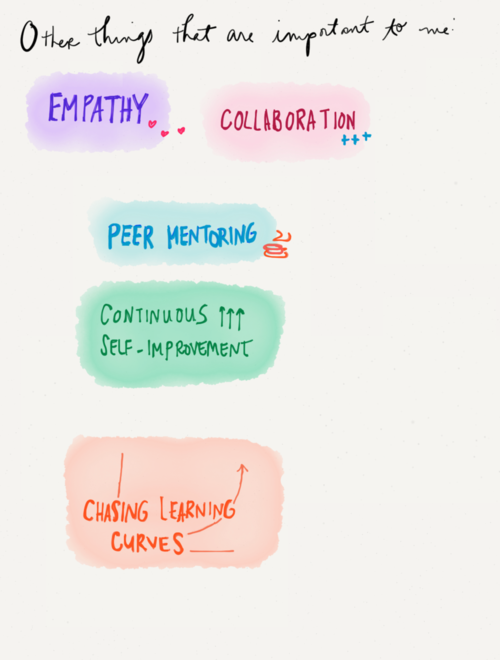 Other things that are important to me:
EMPATHY
COLLABORATION
+++
PEER MENTORING
CONTINUOUS ↑↑↑
SELF-IMPROVEMENT
CHASING LEARNING
CURVES